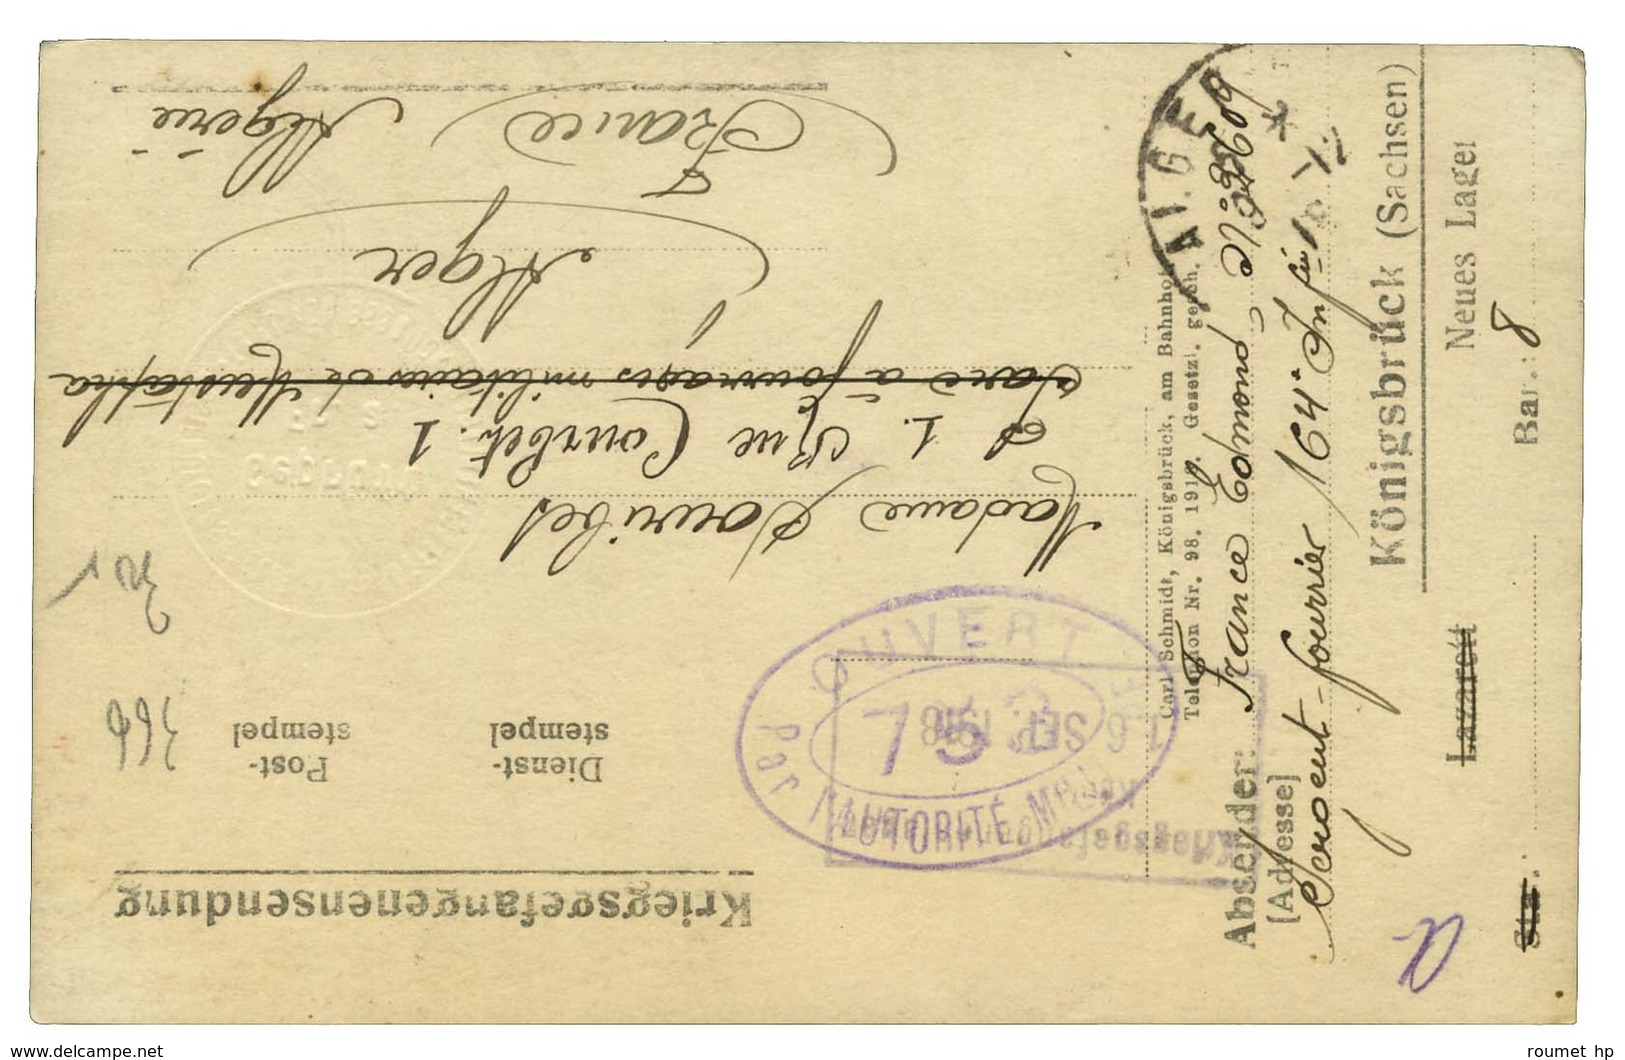 Kriegsgefangenensendung
Dienst-
stempel
Post-
stempel
366
OUVERT
Par l'AUTORITÉ
16 SEP. 1918
Kriegsgefangenen
Madame
1. Rue Courbet. 1
à fourrages militaires de Mustapha
Alger
France
Algérie
ALGER
Carl Schmidt, Königsbrück, am Bahnhof
Telephon Nr. 98. Gesetzl. gesch.
Absender:
France Edmond
[Adresse]
Sergent-fourrier 164e Infie
Königsbrück (Sachsen)
Lazarett
Neues Lager
Bar.: 8
a
roumet hp
www.delcampe.net